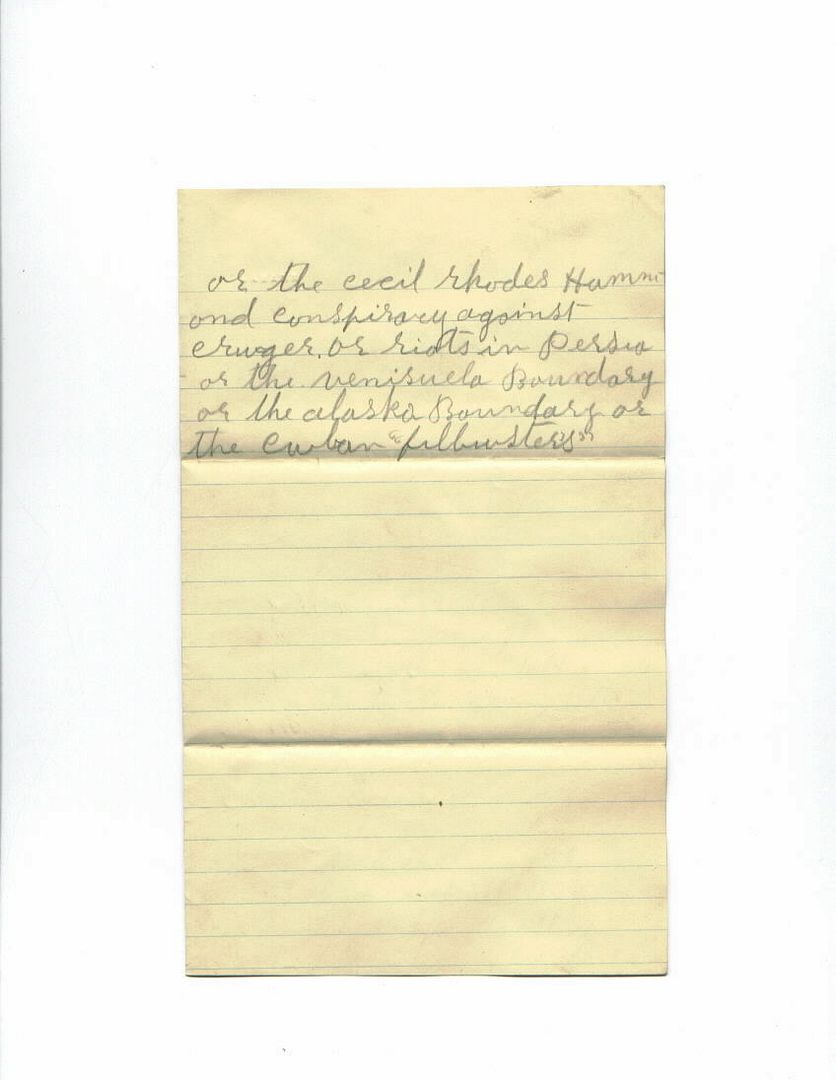 or the cecil rhodes Hamm
ond conspiracy against
cruger, or riots in Persia
or the venisuela Boundary
or the alaska Boundary or
the Cuban "filbusters"